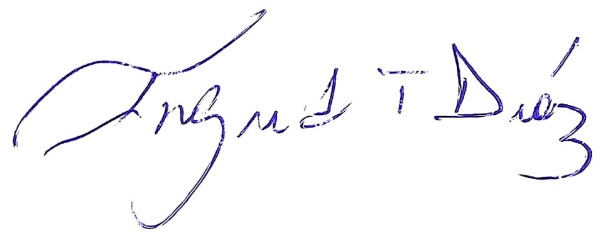 Ingrid T Diáz